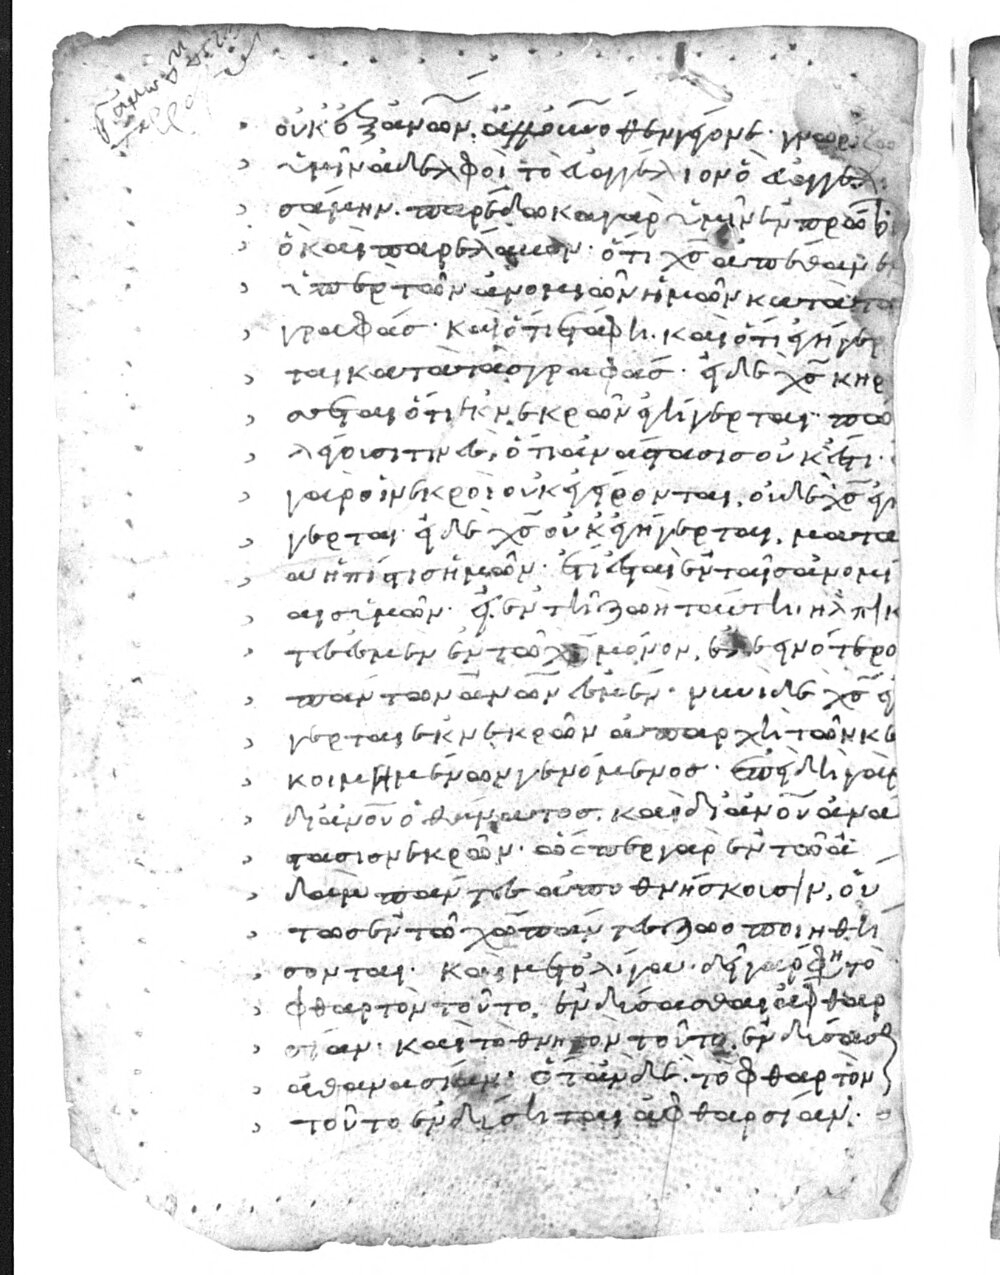 οὐκ ἐξ ἀνῶν, ἀλλ' οὐνόθεν γέγονε· γνωρίζω
ὑμῖν ἀδελφοὶ τὸ εὐαγγέλιον ὃ εὐηγγελι
σάμην. παρέδωκα γὰρ ὑμῖν ἐν πρώ
ὃ καὶ παρέλαβον· ὅτι χς ἀπέθανεν
ὑπὲρ τῶν ἀνομιῶν ἡμῶν κατὰ τὰ
γραφάς· καὶ ὅτι ἐτάφη. καὶ ὅτι ἐγήγερ
ται κατὰ τὰς γραφάς· εἰ δὲ χς κηρ
σεται ὅτι ἐκ νεκρῶν ἐγήγερται· πῶ
λέγουσί τινες, ὅτι ἀνάστασις οὐκ ἔστι·
γὰρ οἱ νεκροὶ οὐκ ἐγείρονται, οὐδὲ χς ἐγ
γερται· εἰ δὲ χς οὐκ ἐγήγερται, ματα
α ἡ πίστις ἡμῶν· ἔτι ἐσται ἐν ταῖς ἀνομί
αις ὑμῶν· εἰ ἐν τῇ ζωῇ ταύτῃ, ἠλπικ
τες ἐσμὲν ἐν τῶ χω μόνον, ἐλεεινότερο
πάντων ἀνων ἐσμέν· νυνὶ δὲ χς ἐ
γερται ἐκ νεκρῶν ἀπαρχὴ τῶν κε
κοιμημένων γενόμενος· ἐπειδὴ γὰρ
δι' ἀνου ὁ θάνατος, καὶ δι' ἀνου ἀνά
στασις νεκρῶν· ὥσπερ γὰρ ἐν τῶ ἀ
δὰμ πάντες ἀποθνήσκουσιν, οὕ
τως ἐν τῶ χω πάντες ζωοποιηθή
σονται· καὶ μετ' ὀλίγον· δεῖ γάρ φη τὸ
φθαρτὸν τοῦτο, ἐνδύσασθαι ἀφθαρ
σίαν· καὶ τὸ θνητὸν τοῦτο, ἐνδύσασ
ἀθανασίαν· ὅταν δὲ τὸ φθαρτὸν
τοῦτο ἐνδύσηται ἀφθαρσίαν·